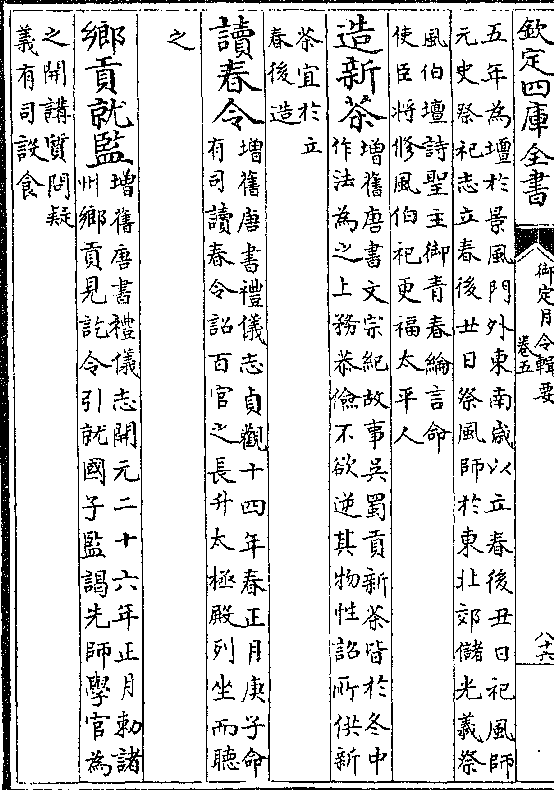 欽定四庫全書
御定月令輯要
卷五
八十六
五年為壇於景風門外東南歲以立春後丑日祀風師
元史祭祀志立春後丑日祭風師於東北郊儲光義祭
風伯壇詩聖主御青春綸言命
使臣將修風伯祀更福太平人
造新茶
增舊唐書文宗紀故事吳蜀貢新茶皆於冬中
作法為之上務恭儉不欲逆其物性詔所供新
茶宜於立
春後造
讀春令
增舊唐書禮儀志貞觀十四年春正月庚子命
有司讀春令詔百官之長升太極殿列坐而聽
之
鄉貢就監
增舊唐書禮儀志開元二十六年正月勅諸
州鄉貢見訖令引就國子監謁先師學官為
之開講質問疑
義有司設食